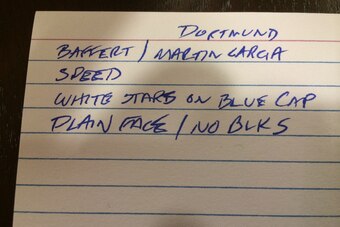 DORTMUND
BAFFERT / MARTIN GARCIA
SPEED
WHITE STARS ON BLUE CAP
PLAIN FACE / NO BLKS